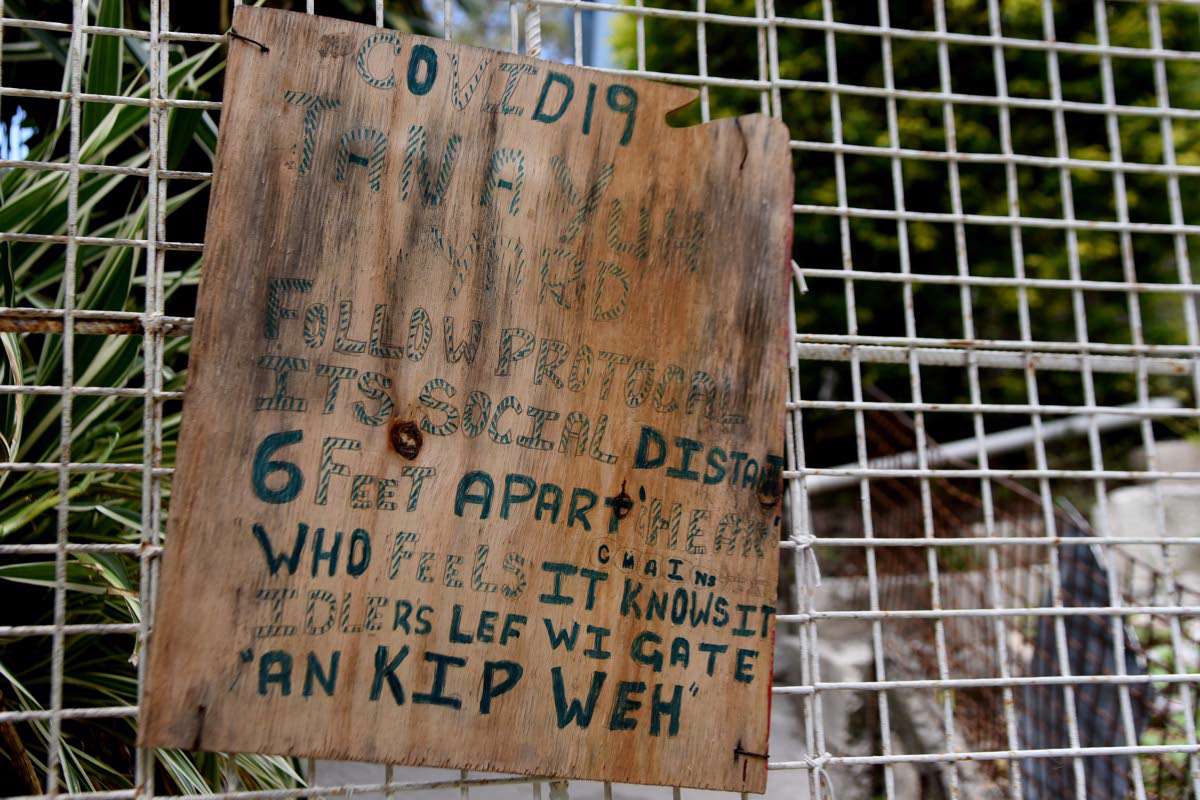 COVID19
TAN A YUH
YARD
FOLLOW PROTOCAL
ITS SOCIAL DISTANT
6 FEET APART "HEAR"
CHAINS
WHO FEELS IT KNOWS IT
IDLERS LEF WI GATE
"AN KIP WEH"